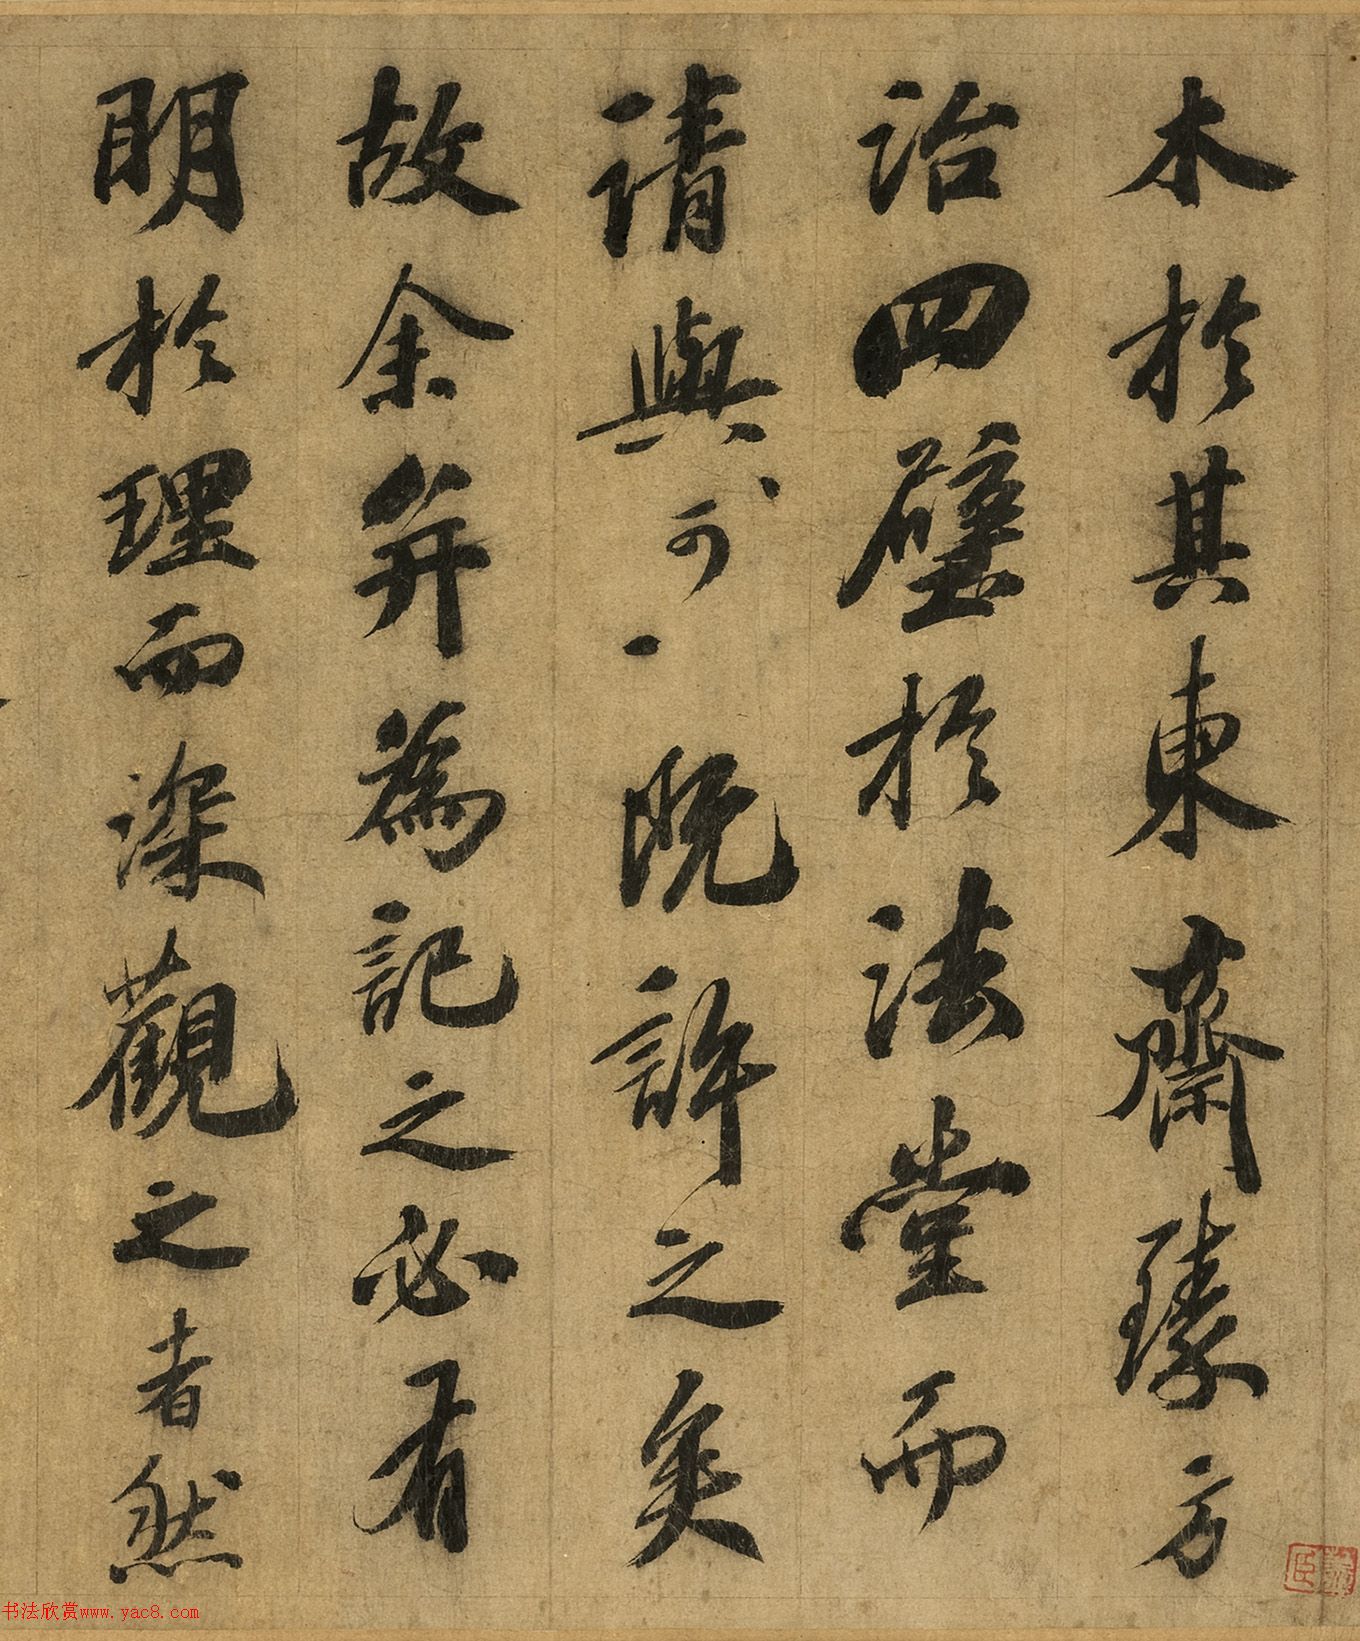 木於其東齋臻方
治四壁於法堂而
請與可一既許之矣
故余并為記之必有
明於理而深觀之者然
书法欣赏www.yac8.com